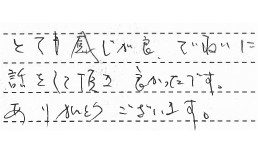 とても感じが良、ていねいに
話をして頂き良かったです。
ありがとうございます。